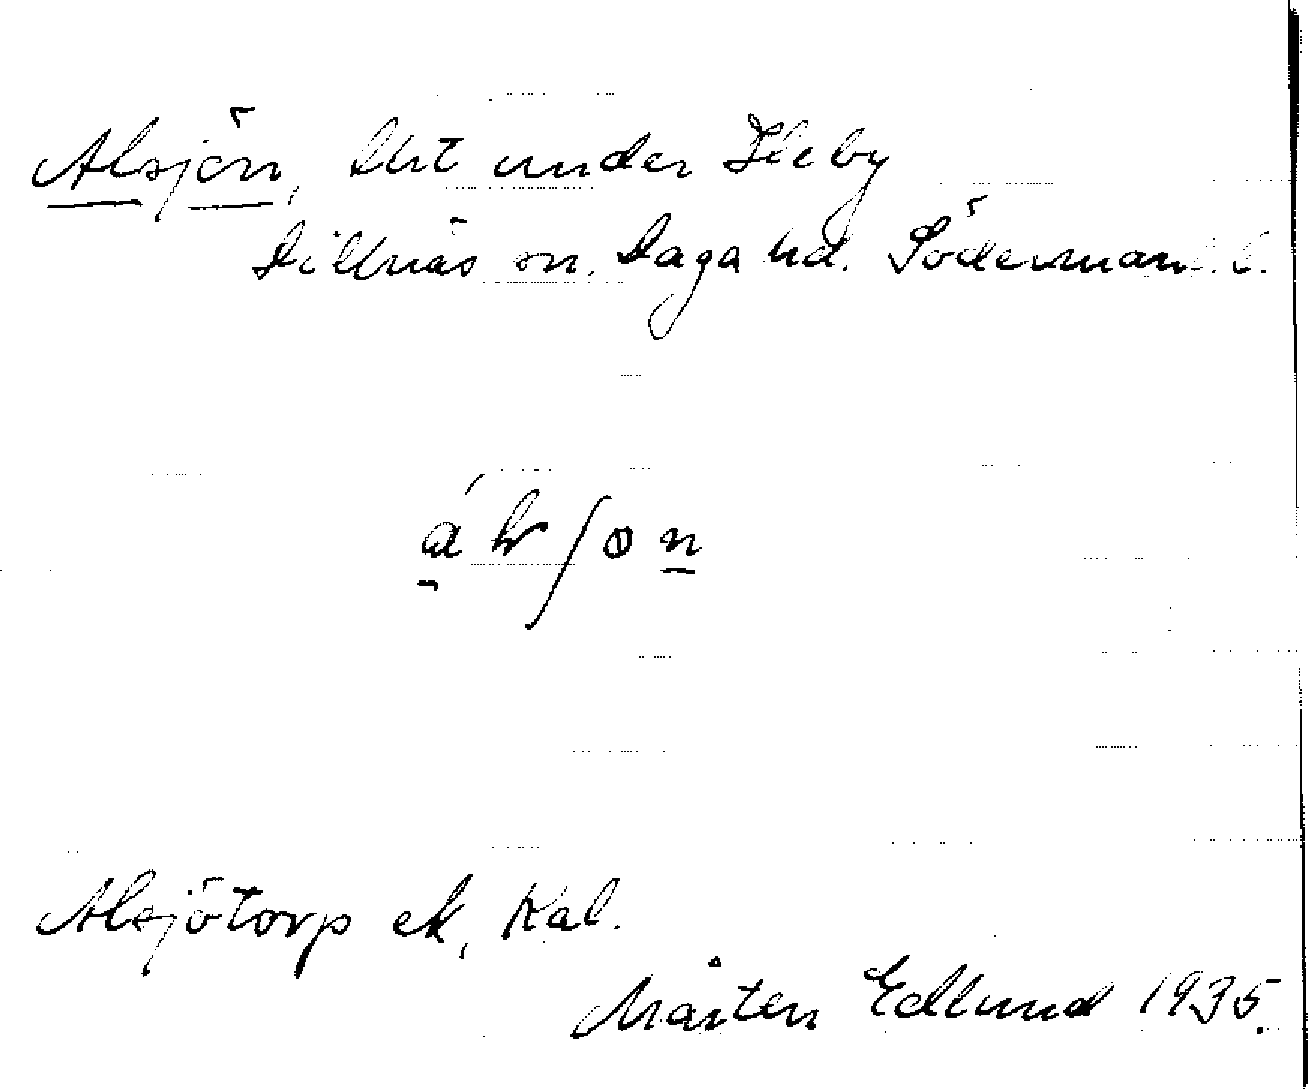 Alsjön, Ldht under Heby
Dillnäs sn. Daga hd. Söderman. l.
Alsjötorp ek, Kal.
Mårten Edlund 1935.